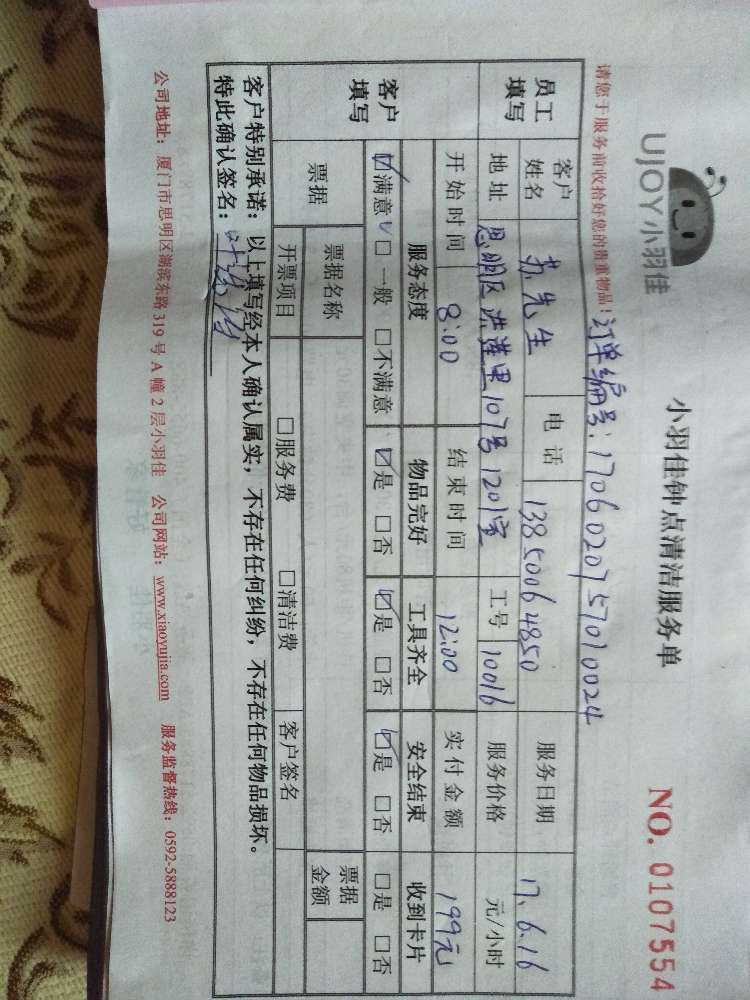 UJOY小羽佳
小羽佳钟点清洁服务单
NO. 0107554
请您于服务前收拾好您的贵重物品！
订单编号：17060207570 10024
员工填写
客户姓名 苏先生 电话 13850064850 服务日期 17.6.16
地址 思明区洪莲里107号1201室 工号 10016 服务价格 元/小时
开始时间 8:00 结束时间 12:00 实付金额 199元
客户填写
服务态度 物品完好 工具齐全 安全结束 收到卡片
☑满意 □一般 □不满意 ☑是 □否 ☑是 □否 ☑是 □否 □是 □否
票据 票据名称 票据金额
开票项目 □服务费 □清洁费 客户签名
客户特别承诺：以上填写经本人确认属实，不存在任何纠纷，不存在任何物品损坏。
特此确认签名：
公司地址：厦门市思明区湖滨东路319号A幢2层小羽佳 公司网站：www.xiaoyujia.com 服务监督热线：0592-5888123